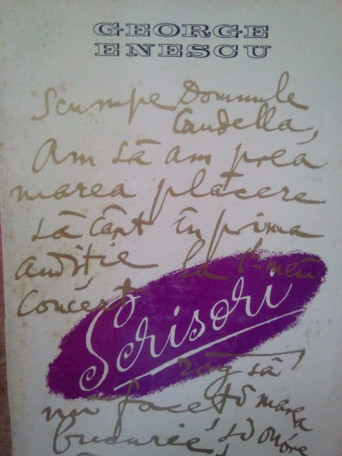 GEORGE
ENESCU
Scumpe Domnule
Caudella,
Am să am prea
marea plăcere
să cânt în prima
audiție la
Concert
Scrisori
rog să
nu face marea
bucurie, să